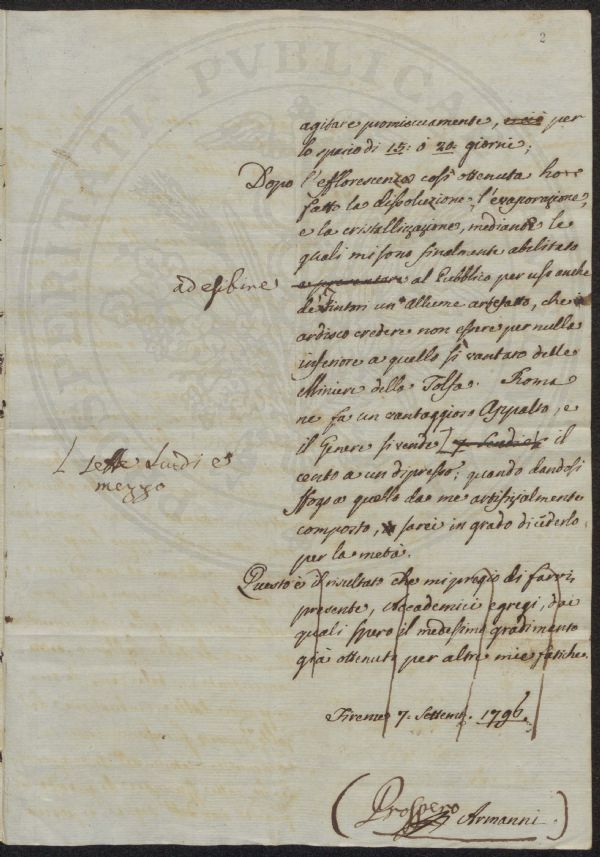 2
agitare promiscuamente, per
lo spazio di 15: o 20: giorni;
Dopo l'efflorescenza così ottenuta ho
fatto la dissoluzione, l'evaporazione,
e la cristallizazione, mediante le
quali mi sono finalmente abilitato
ad esibire
a presentare al Pubblico per uso anche
de' Tintori un' allume artefatto, che
ardisco credere non essere per nulla
inferiore a quello sì vantato delle
Miniere della Tolfa. Roma
ne fa un vantaggioso Appalto, e
il Genere si vende il
L sette Scudi e
mezzo
cento a un dipresso; quando dandosi
sfogo a quello da me artifizialmente
composto, sarei in grado di cederlo
per la metà.
Questo è il risultato che mi pregio di farvi
presente, Accademici egregi, da
quali spero il medesimo gradimento
già ottenuto per altre mie fatiche.
Firenze 7: Settemb. 1796.
(Prospero Armanni.)